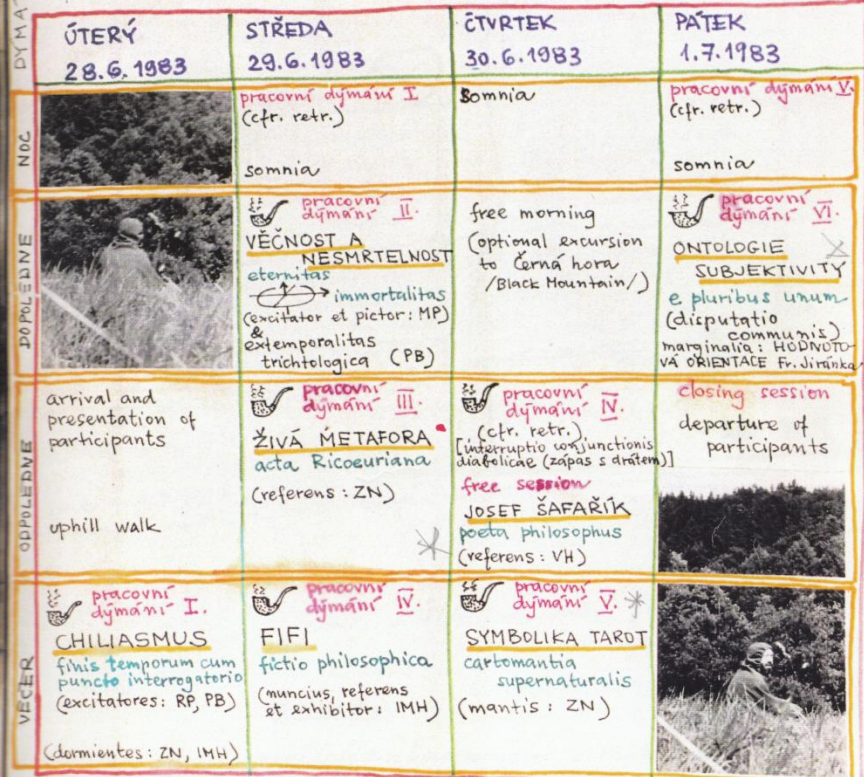 DÝMÁ
ÚTERÝ
28.6.1983
STŘEDA
29.6.1983
ČTVRTEK
30.6.1983
PÁTEK
1.7.1983
NOC
pracovní dýmání I
(cfr. retr.)
somnia
somnia
pracovní dýmání V.
(cfr. retr.)
somnia
DOPOLEDNE
pracovní
dýmání II.
VĚČNOST A
NESMRTELNOST
eternitas
immortalitas
(excitator et pictor: MP)
&
extemporalitas
trichtologica (PB)
free morning
(optional excursion
to Černá hora
/Black Mountain/)
pracovní
dýmání VI.
ONTOLOGIE
SUBJEKTIVITY
e pluribus unum
(disputatio
communis)
marginalia: HODNOTO-
VÁ ORIENTACE Fr. Jiránka
ODPOLEDNE
arrival and
presentation of
participants
uphill walk
pracovní
dýmání III.
ŽIVÁ METAFORA
acta Ricoeuriana
(referens: ZN)
pracovní
dýmání IV.
(cfr. retr.)
[interruptio conjunctionis
diabolicae (zápas s drátem)]
free session
JOSEF ŠAFAŘÍK
poeta philosophus
(referens: VH)
closing session
departure of
participants
VEČER
pracovní
dýmání I.
CHILIASMUS
finis temporum cum
puncto interrogatorio
(excitatores: RP, PB)
(dormientes: ZN, IMH)
pracovní
dýmání IV.
FIFI
fictio philosophica
(nuncius, referens
et exhibitor: IMH)
pracovní
dýmání V.
SYMBOLIKA TAROT
cartomantia
supernaturalis
(mantis: ZN)